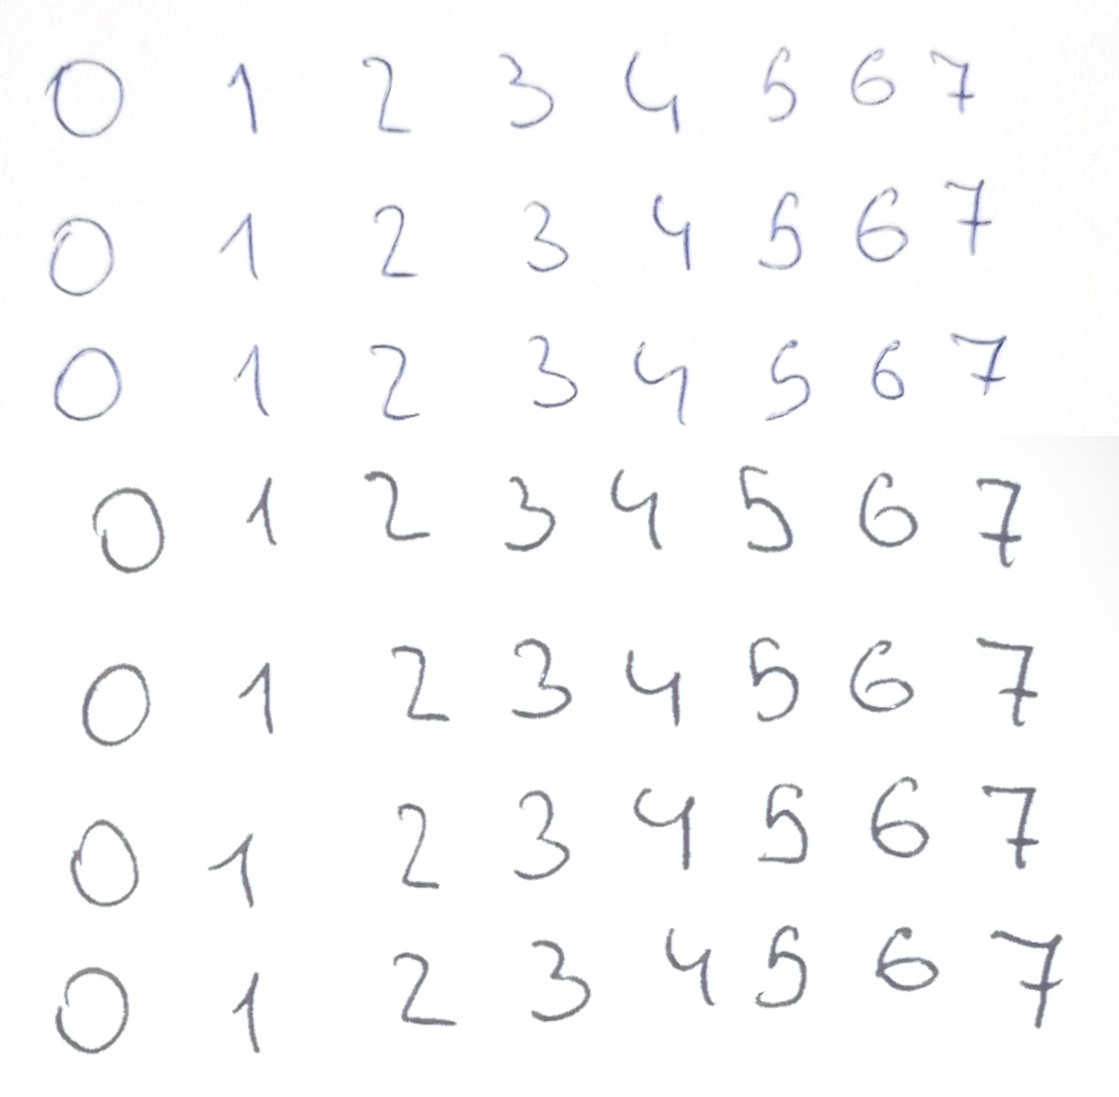 0 1 2 3 4 5 6 7
0 1 2 3 4 5 6 7
0 1 2 3 4 5 6 7
0 1 2 3 4 5 6 7
0 1 2 3 4 5 6 7
0 1 2 3 4 5 6 7
0 1 2 3 4 5 6 7